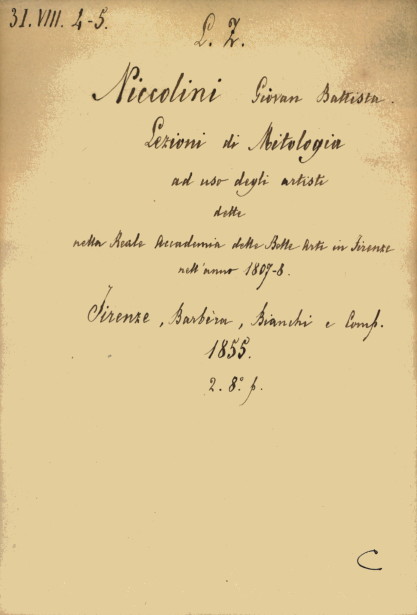 31. VIII. 4-5.
L. Z.
Niccolini Giovan Battista.
Lezioni di Mitologia
ad uso degli artisti
dette
nella Reale Accademia delle Belle Arti in Firenze
nell'anno 1807-8.
Firenze, Barbèra, Bianchi e Comp.
1855.
2. 8.° p.
C